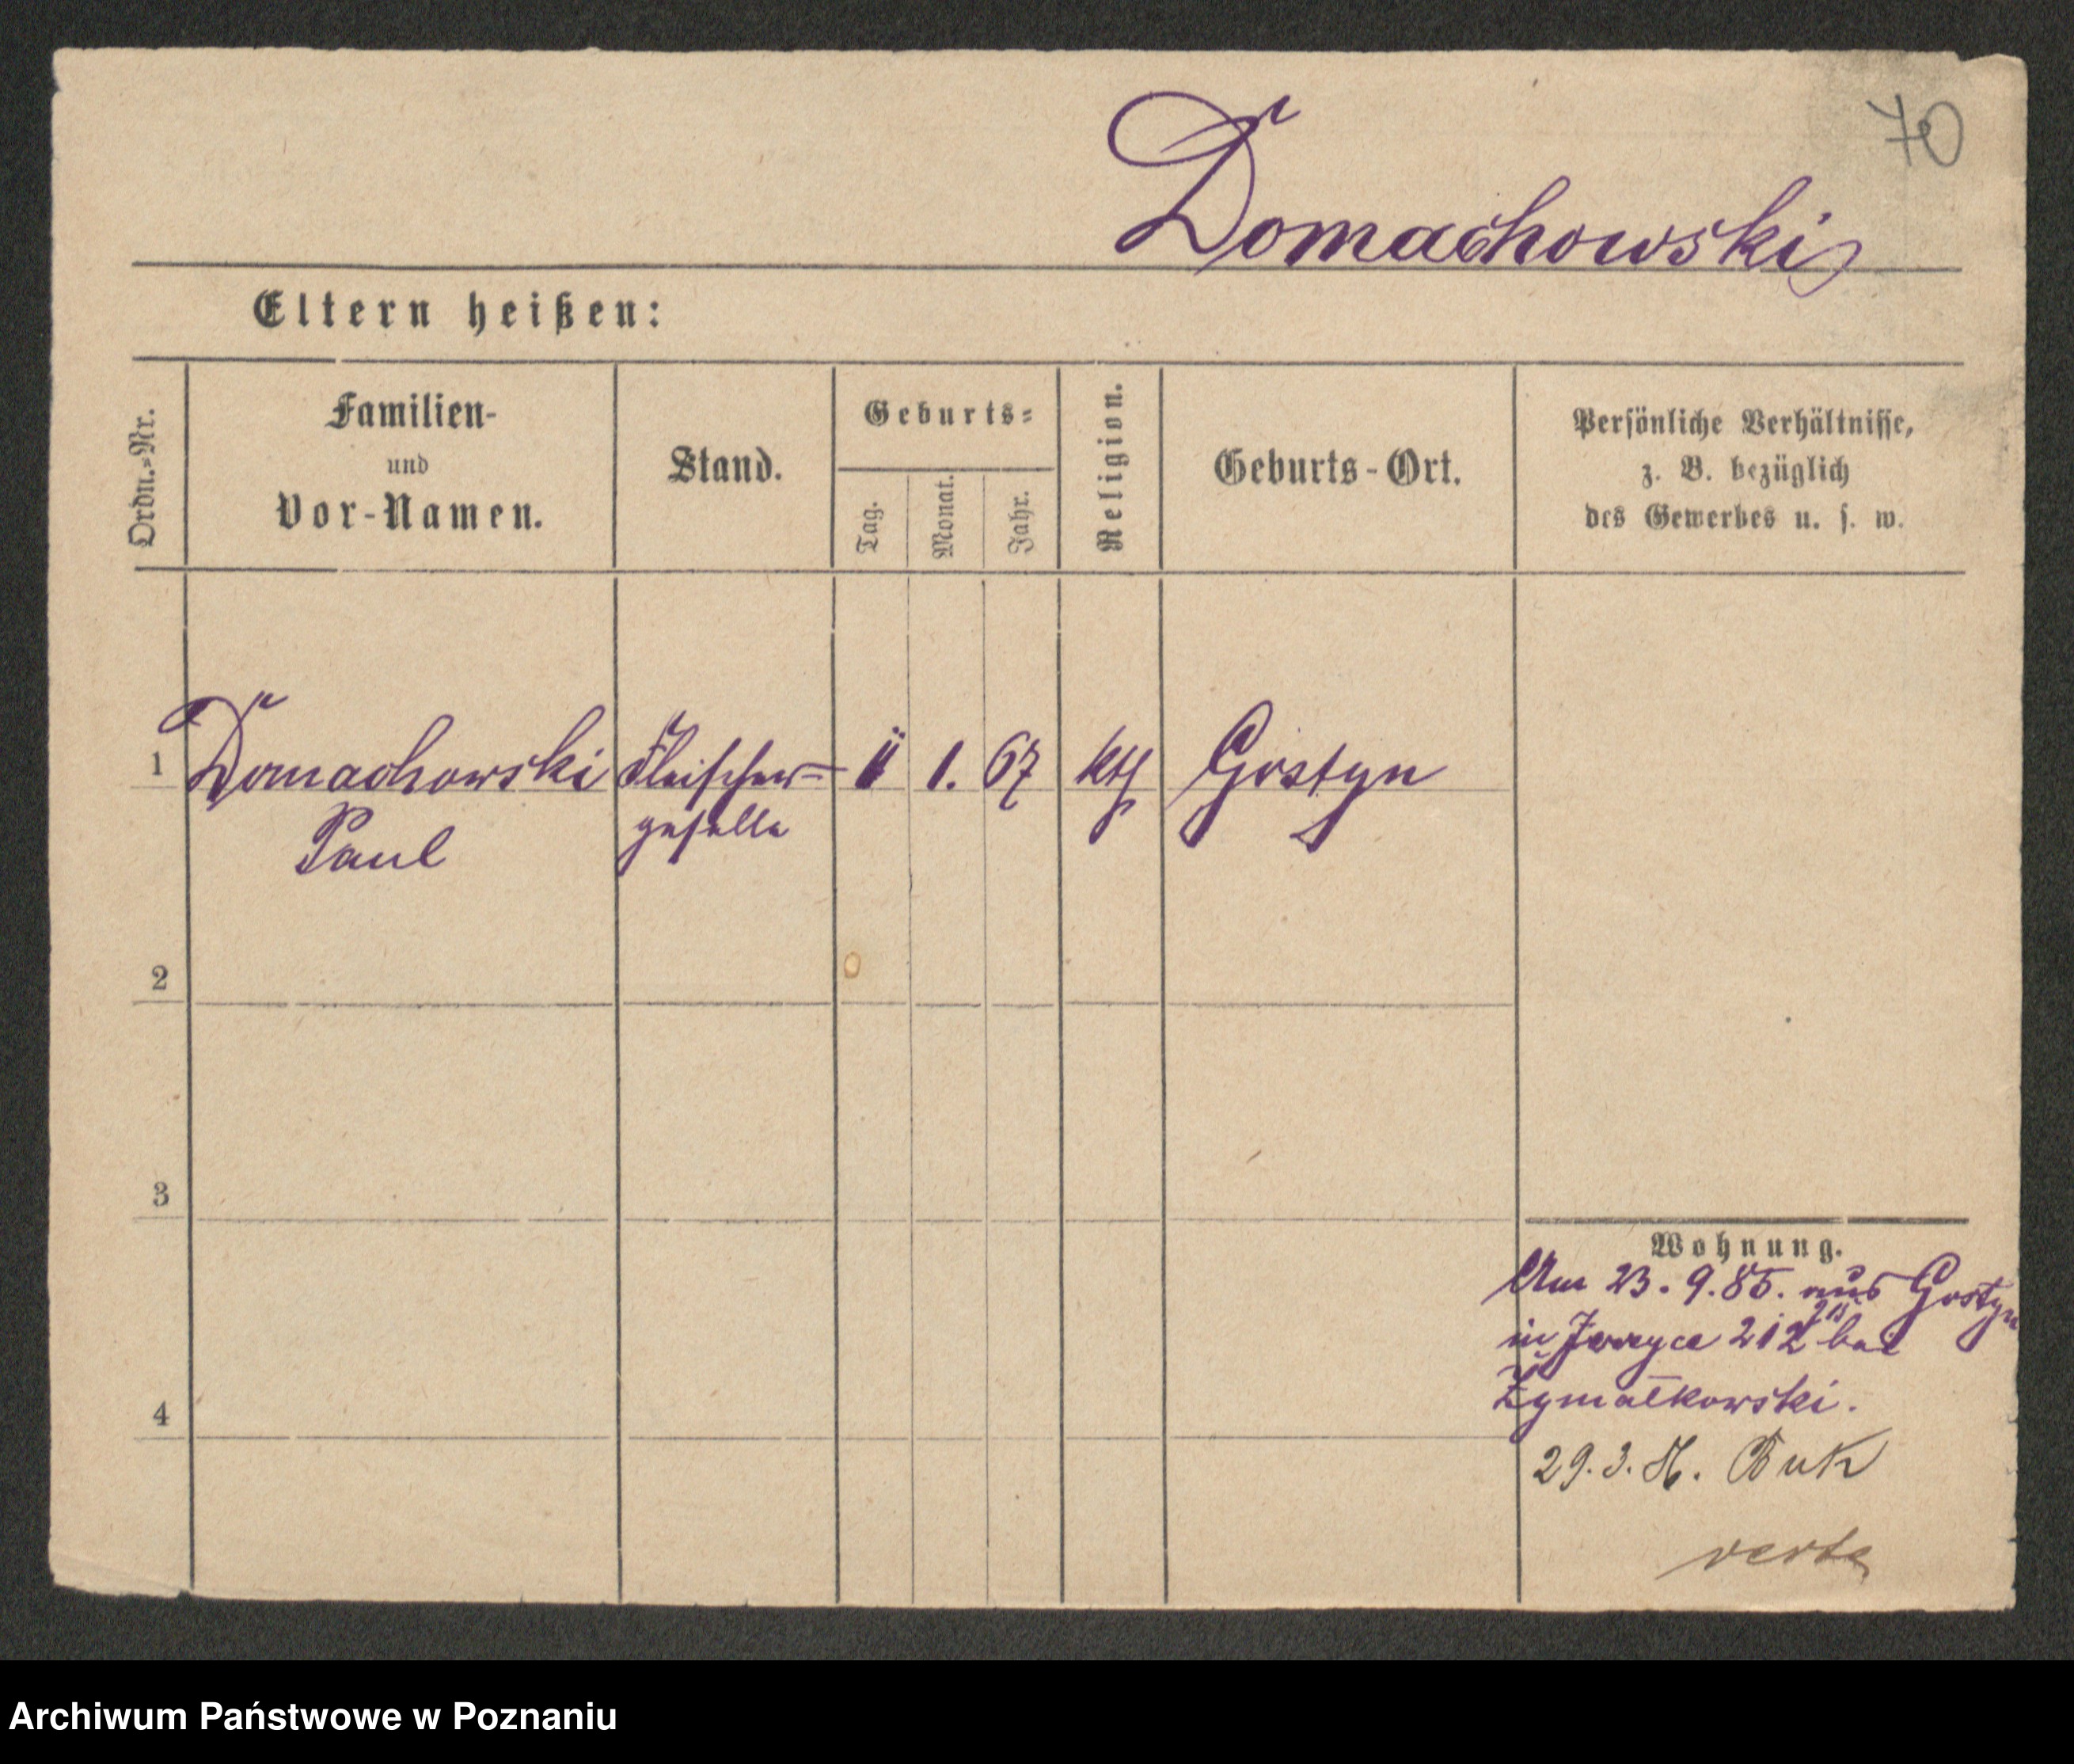 70
Domachowski
Eltern heißen:
Ordn.=Nr.
Familien-
und
Vor-Namen.
Stand.
Geburts=
Tag.
Monat.
Jahr.
Religion.
Geburts-Ort.
Persönliche Verhältnisse,
z. B. bezüglich
des Gewerbes u. s. w.
1 Domachowski Fleischer= 1. 67 kth Gostyn
Paul geselle
2
3
4
Wohnung.
Am 23.9.85. aus Gostyn
in Jerzyce 212 bei
Zymalkowski.
29.3. Buk
verte
Archiwum Państwowe w Poznaniu